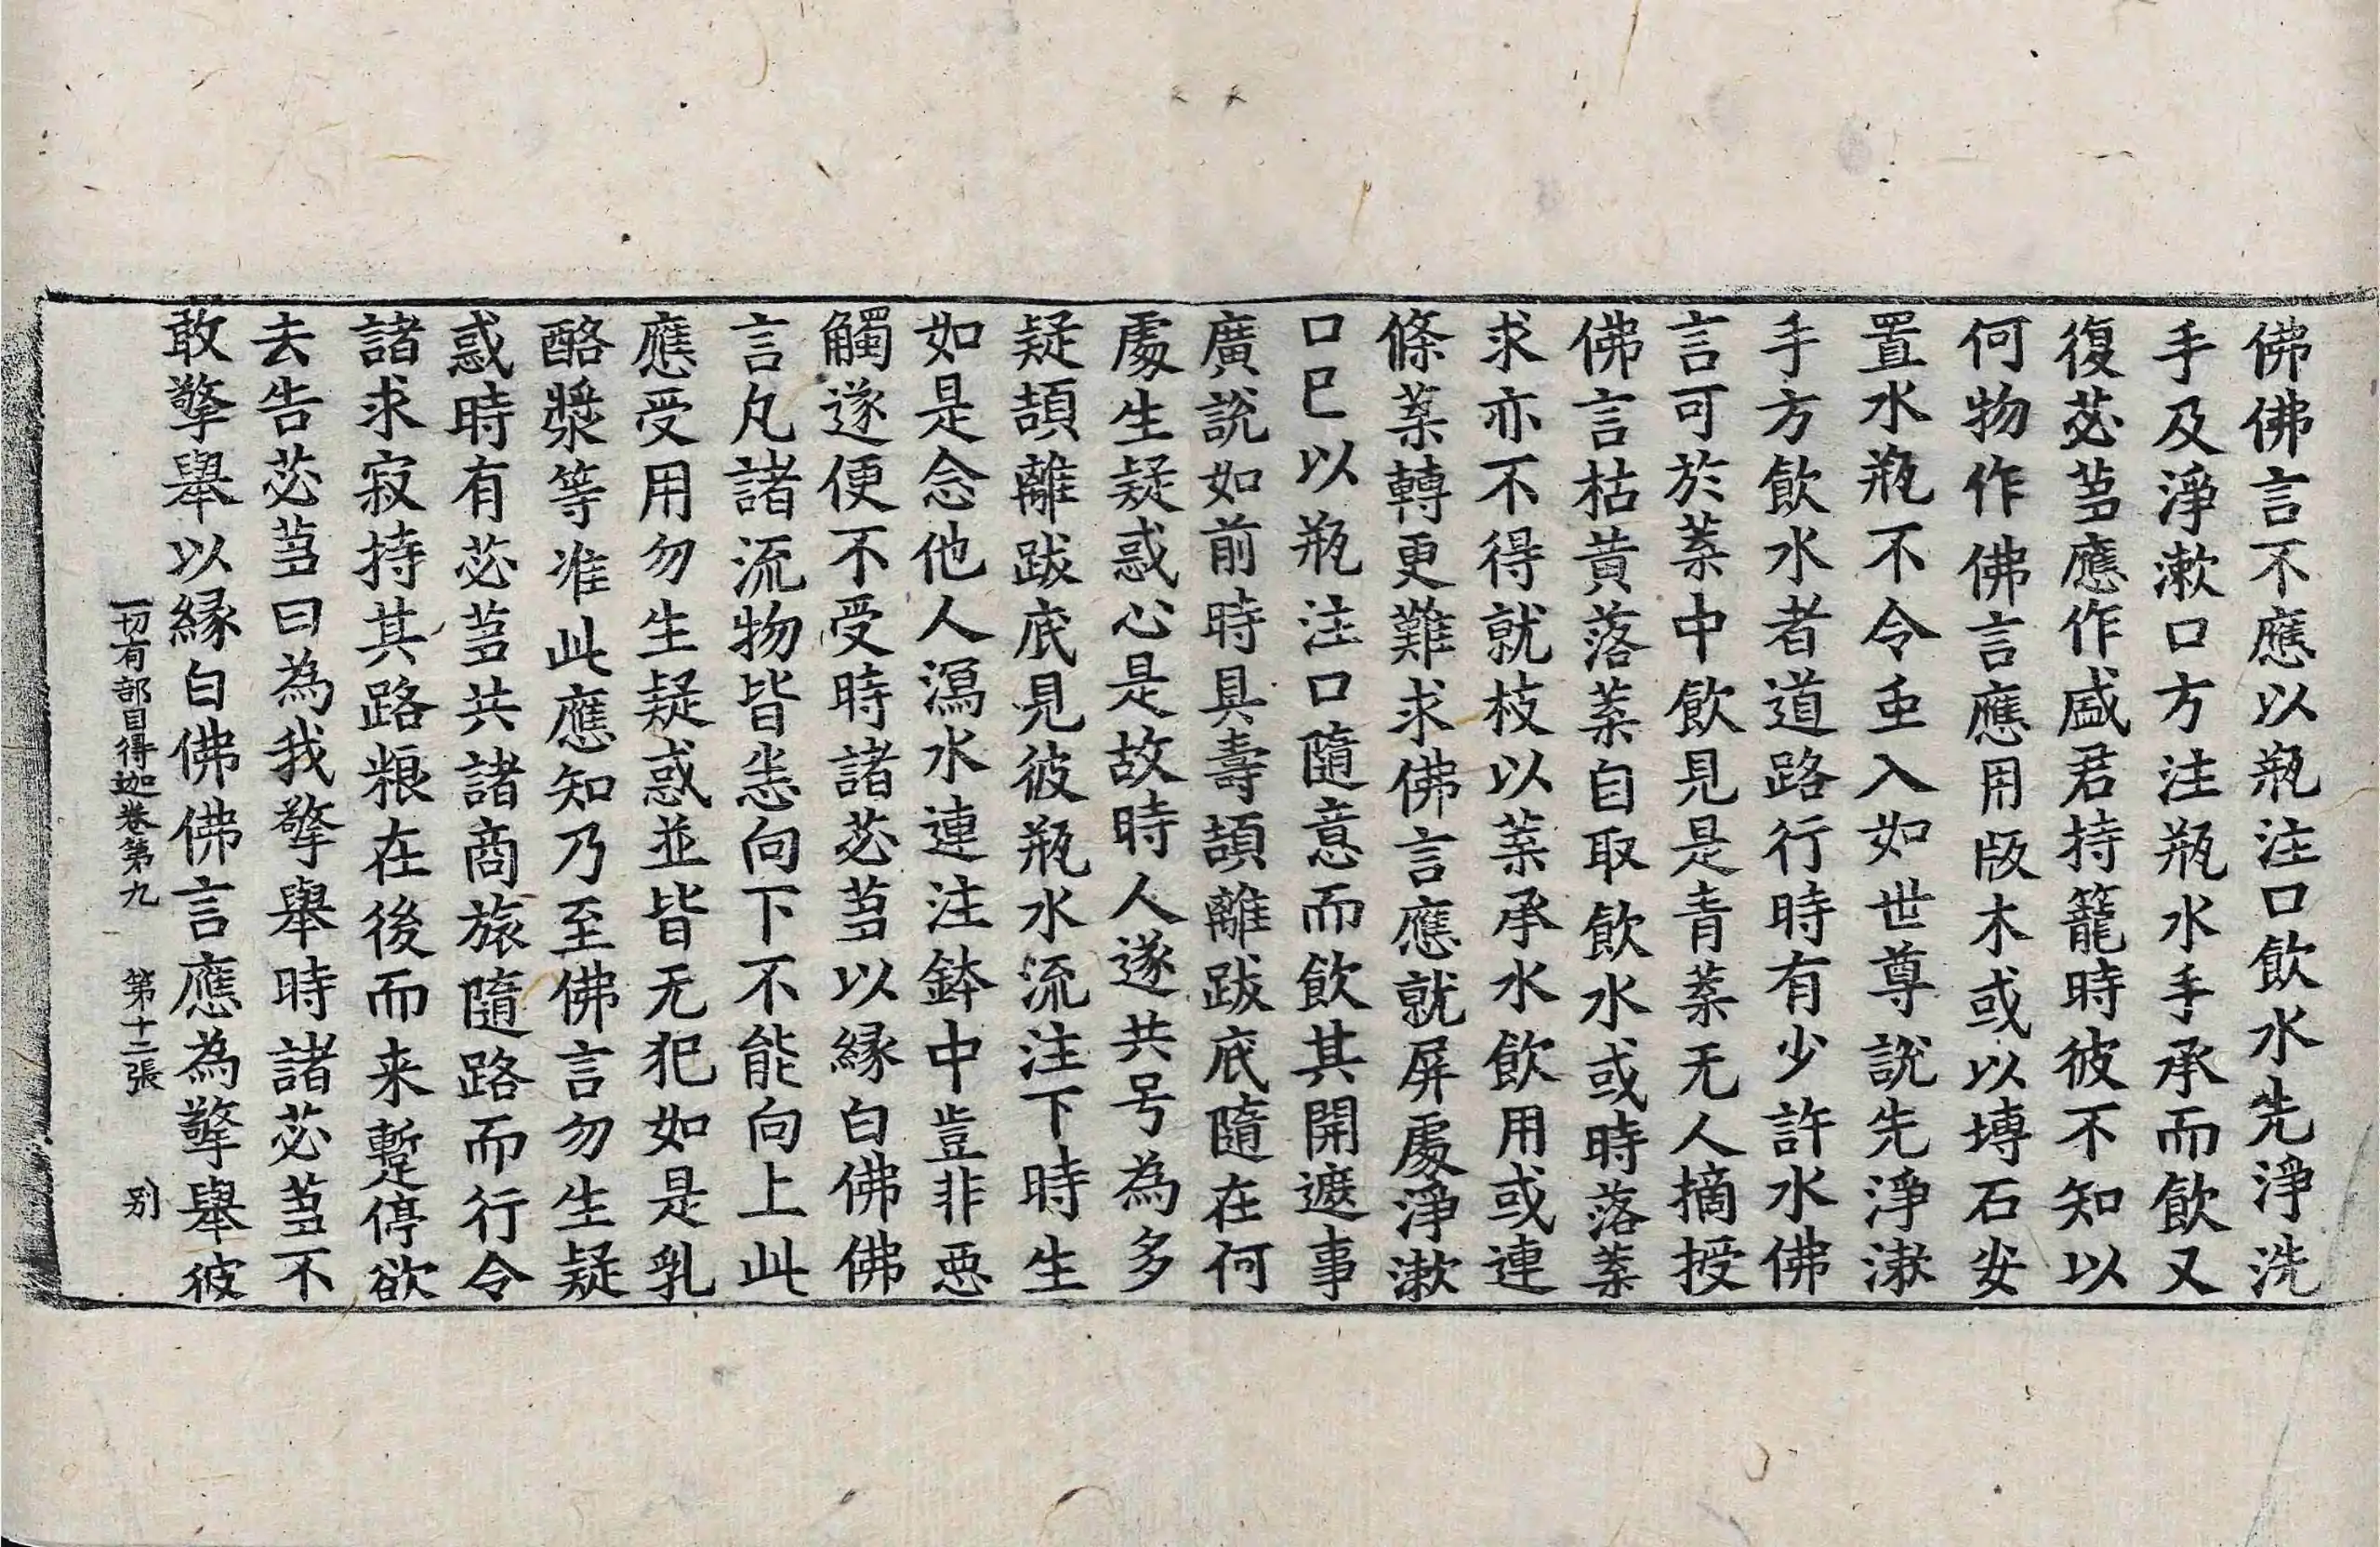 佛佛言不應以瓶注口飲水先淨洗
手及淨漱口方注瓶水手承而飲又
復苾芻應作盛君持籠時彼不知以
何物作佛言應用版木或以塼石安
置水瓶不令虫入如世尊說先淨漱
手方飲水者道路行時有少許水佛
言可於葉中飲見是青葉无人摘授
佛言枯黃落葉自取飲水或時落葉
求亦不得就枝以葉承水飲用或連
條葉轉更難求佛言應就屏處淨漱
口已以瓶注口隨意而飲其開遮事
廣說如前時具壽頡離跋底隨在何
處生疑惑心是故時人遂共号為多
疑頡離跋底見彼瓶水流注下時生
如是念他人瀉水連注鉢中豈非惡
觸遂便不受時諸苾芻以緣白佛佛
言凡諸流物皆悉向下不能向上此
應受用勿生疑惑並皆无犯如是乳
酪漿等准此應知乃至佛言勿生疑
惑時有苾芻共諸商旅隨路而行令
諸求寂持其路粮在後而来暫停欲
去告苾芻曰為我擎舉時諸苾芻不
敢擎舉以緣白佛佛言應為擎舉彼
一切有部目得迦卷第九　第十二張　別